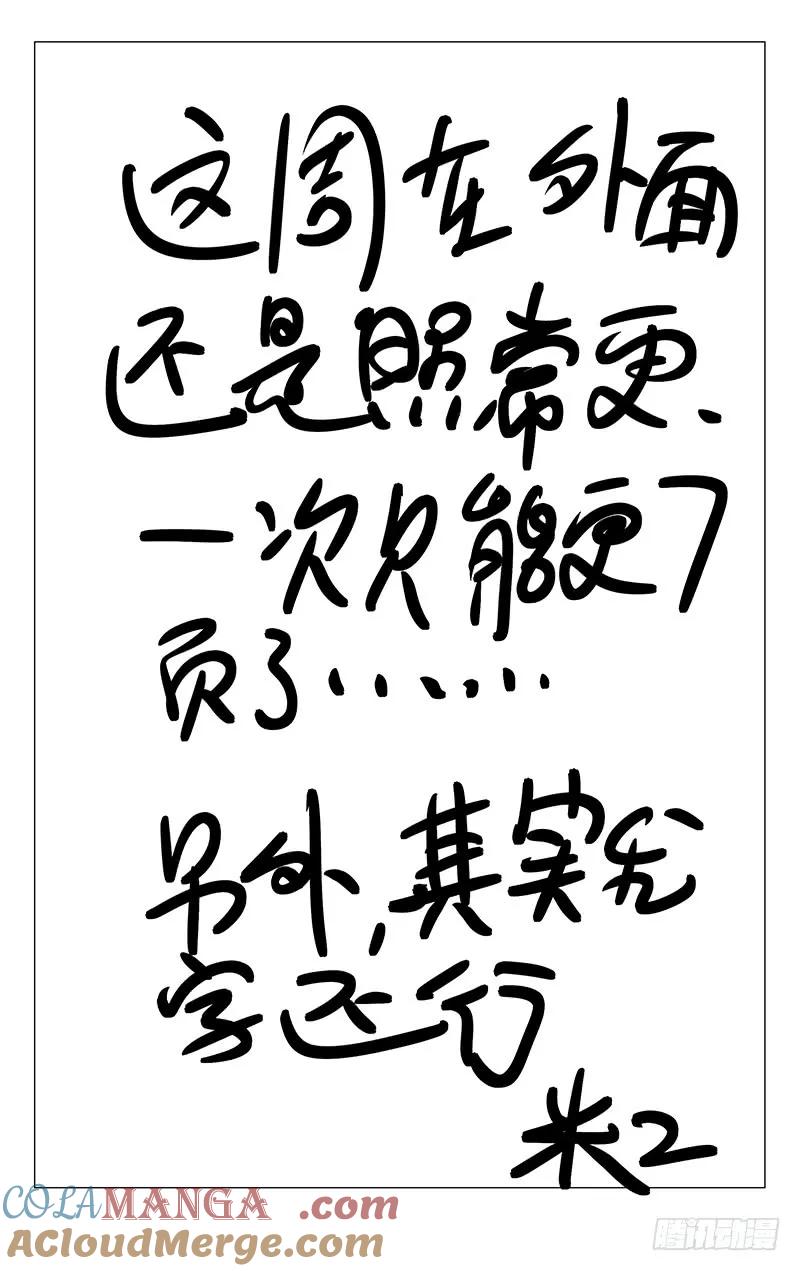 这周在外面
还是照常更、
一次只能更7
页了……
另外,其实我
字还行
米二
COLAMANGA.com
AcloudMerge.com
腾讯动漫